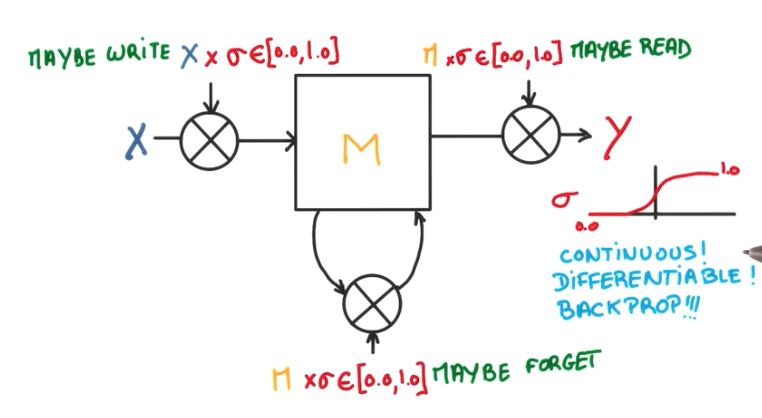 MAYBE WRITE X x σ∈[0.0,1.0]
M xσ∈[0.0,1.0] MAYBE READ
X
M
Y
σ
1.0
0.0
CONTINUOUS!
DIFFERENTIABLE!
BACKPROP!!!
M xσ∈[0.0,1.0] MAYBE FORGET